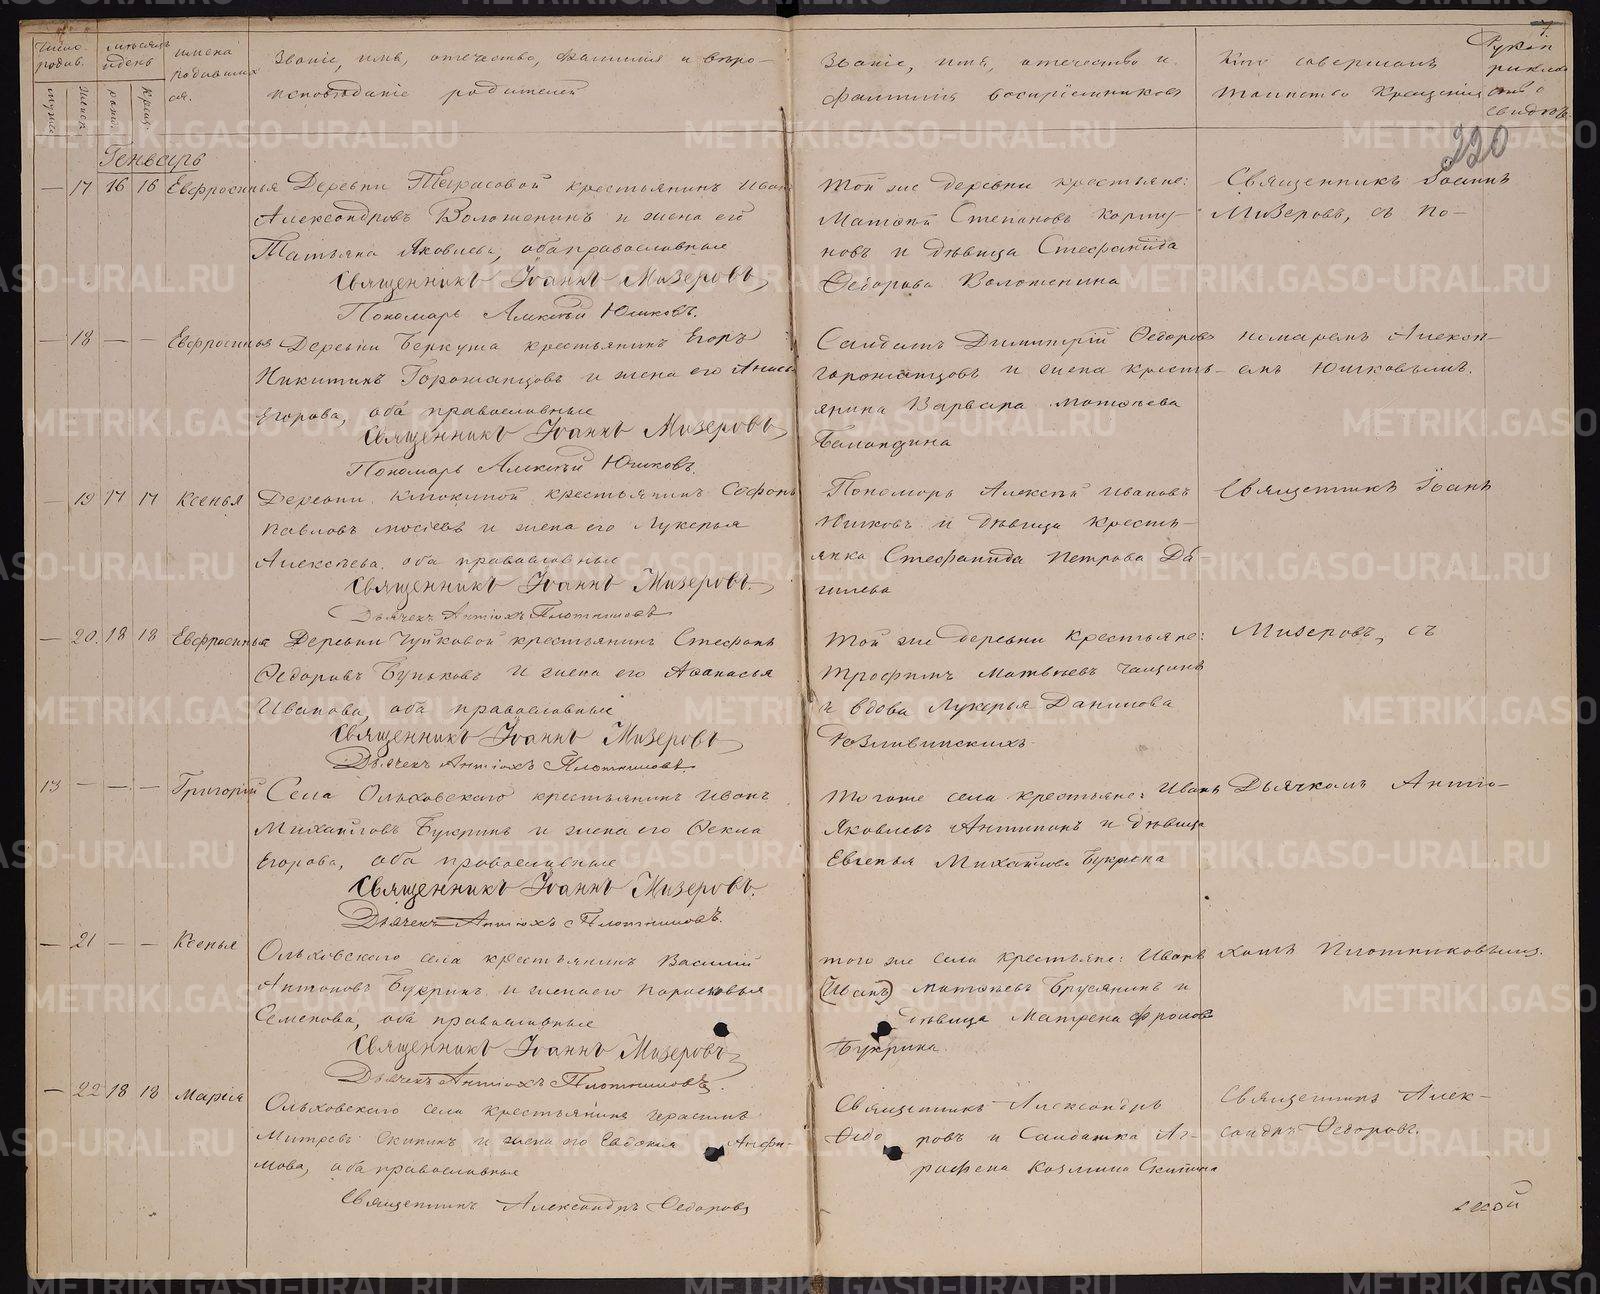 Число родив.
Мѣсяцъ и день
Имена родившихся.
Званіе, имя, отечество, фамилія и вѣро-
исповѣданіе родителей
Званіе, имя, отечество и
фамилія воспріемниковъ
Кто совершалъ
таинство крещенія
Мужск
Женск
рожд.
Крещ.
220
Генварь
— 17 16 16 Евфросинья
Деревни Тарасовой крестьянинъ Иванъ
Александровъ Воложенинъ и жена его
Татьяна Яковлева, оба православные
Священникъ Іоаннъ Мизеровъ
Пономарь Алексѣй Юшковъ.
Той же деревни крестьяне:
Матвѣй Степановъ Коршу-
новъ и дѣвица Стефанида
Ѳедорова Воложенина
Священникъ Іоаннъ
Мизеровъ, съ по-
— 18 — — Евфросинья
Деревни Беркута крестьянинъ Егоръ
Никитинъ Горожанцовъ и жена его
Егорова, оба православные
Священникъ Іоаннъ Мизеровъ
Пономарь Алексѣй Юшковъ.
Салдатъ Димитрій Ѳедоровъ
Горожанцовъ и жена кресть-
янина Варвара Матвѣева
Баландина
номаремъ Алексѣ-
емъ Юшковымъ.
— 19 17 17 Ксенья
Деревни Клюкиной крестьянинъ Софонъ
Павловъ и жена его Лукерья
Алексѣева, оба православные
Священникъ Іоаннъ Мизеровъ.
Дьячекъ Антіохъ Плотниковъ
Пономарь Алексѣй Ивановъ
Юшковъ и дѣвица кресть-
янка Стефанида Петрова
Священникъ Іоаннъ
— 20. 18 18 Евфросинья
Деревни Чупковой крестьянинъ Стефанъ
Ѳедоровъ Буньковъ и жена его Афанасья
Иванова, оба православные
Священникъ Іоаннъ Мизеровъ
Дьячекъ Антіохъ Плотниковъ.
Той же деревни крестьяне:
Трофимъ Матвѣевъ
и вдова Лукерья Данилова
Мизеровъ, съ
13 — — — Григорій
Села Ольховскаго крестьянинъ Иванъ
Михайловъ Букринъ и жена его Ѳекла
Егорова, оба православные
Священникъ Іоаннъ Мизеровъ.
Дьячекъ Антіохъ Плотниковъ.
Тогоже села крестьяне: Иванъ
Яковлевъ Антипинъ и дѣвица
Евгенья Михайлова Букрина
Дьячкомъ Антіо-
— 21 — — Ксенья
Ольховскаго села крестьянинъ Василій
Антоновъ Букринъ и жена его Парасковья
Семенова, оба православные
Священникъ Іоаннъ Мизеровъ
Дьячекъ Антіохъ Плотниковъ.
того же села крестьяне: Иванъ
(Иванъ) Матвѣевъ Брусянинъ и
дѣвица Матрена Фролова
Букрина.
хомъ Плотниковымъ.
— 22 18 18 Марія
Ольховскаго села крестьянинъ Герасимъ
Митревъ Скипинъ и жена его Евдокія Анфи-
мова, оба православные
Священникъ Александръ Ѳедоровъ
Священникъ Александръ
Ѳедоровъ и Салдатка Аг-
рафена Козмина Скипина
Священникъ Алек-
сандръ Ѳедоровъ.
METRIKI.GASO-URAL.RU